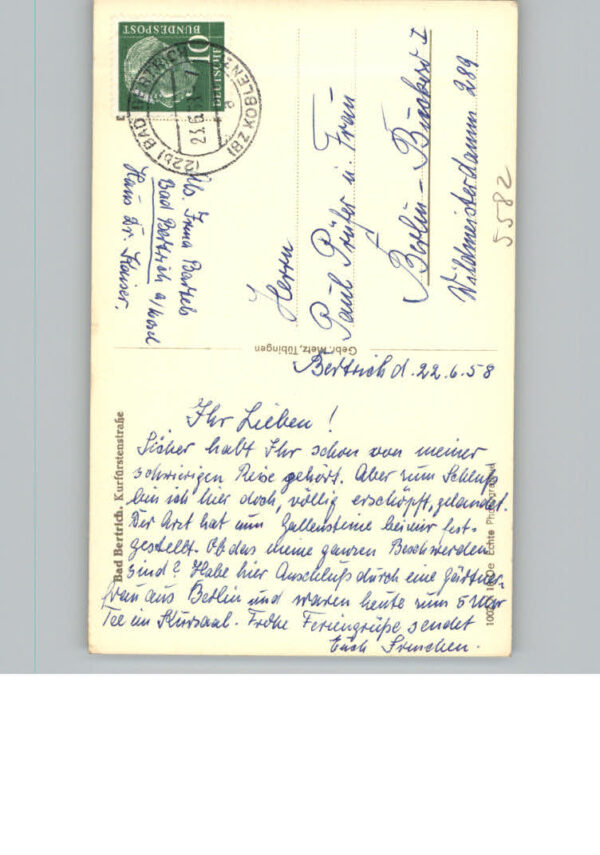 Bertrich d. 22.6.58
Ihr Lieben!
Sicher habt Ihr schon von meiner
schwierigen Reise gehört. Aber zum Schluß
bin ich hier doch, völlig erschöpft, gelandet.
Der Arzt hat nun Gallensteine bei mir fest-
gestellt. Ob das meine ganzen Beschwerden
sind? Habe hier Anschluß durch eine Gärtner-
frau aus Berlin und waren heute zum 5 Uhr
Tee im Kursaal. Frohe Feriengrüße sendet
Euch Irmchen.
Herrn
Paul Prüfer u. Frau
Berlin-Buckow I
Wildmeisterdamm 289
5582
Abs. Irma Bartels
Bad Bertrich a/Mosel
Haus Dr. Kaiser.
DEUTSCHE
BUNDESPOST
10
(22b) BAD BERTRICH
(BZ KOBLENZ)
Gebr. Metz, Tübingen
Bad Bertrich, Kurfürstenstraße
Echte